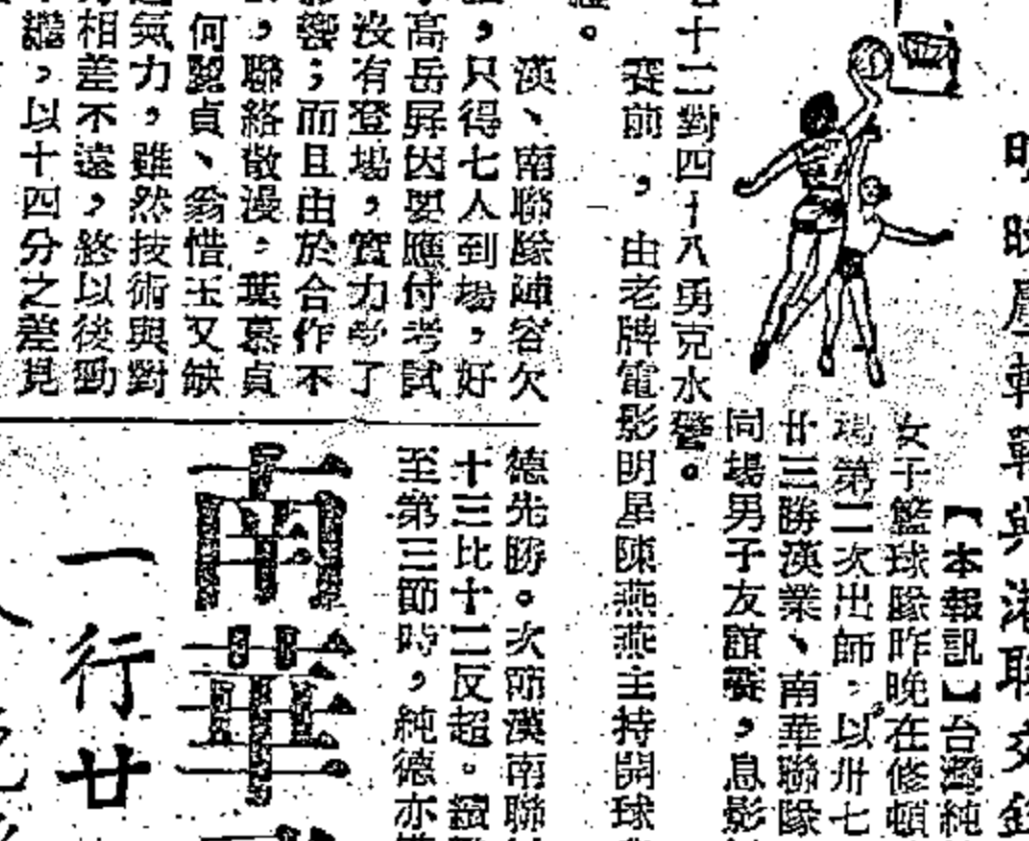 戰與港聯交
【本報訊】台灣純
女子籃球隊昨晚在修頓
場第二次出師，以卅七
廿三勝漢業、南華聯隊
同場男子友誼賽，息影
十二對四十八勇克水警。
賽前，由老牌電影明星陳燕燕主持開球
。
漢、南聯隊陣容欠
，只得七人到場，好
高岳昇因要應付考試
沒有登場，實力打了
響；而且由於合作不
，聯絡散漫。葉慕貞
何麗貞、翁惜玉又缺
氣力，雖然技術與對
相差不遠，終以後勁
繼，以十四分之差見
德先勝。次節漢南聯
十三比十二反超。續
至第三節時，純德亦
南華
一行廿